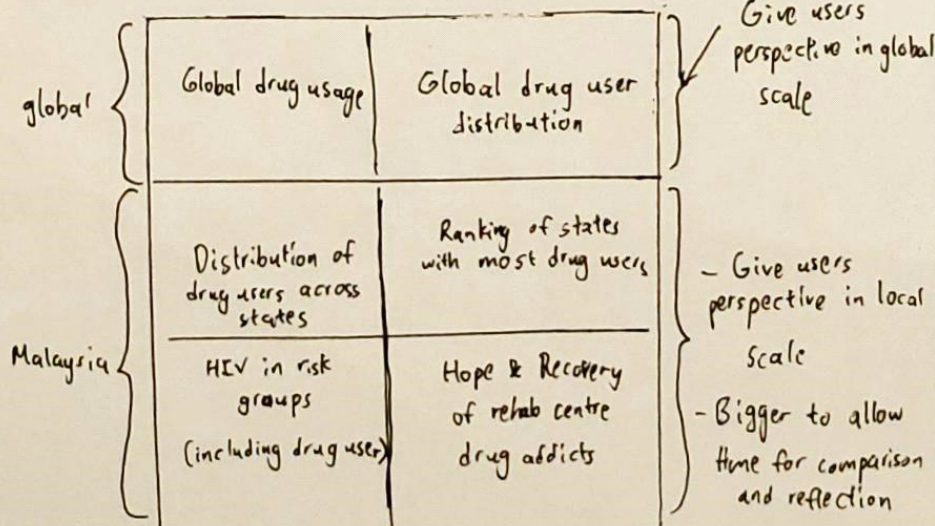 global
Global drug usage
Global drug user
distribution
Give users
perspective in global
scale
Malaysia
Distribution of
drug users across
states
Ranking of states
with most drug users
HIV in risk
groups
(including drug user)
Hope & Recovery
of rehab centre
drug addicts
- Give users
perspective in local
scale
- Bigger to allow
time for comparison
and reflection